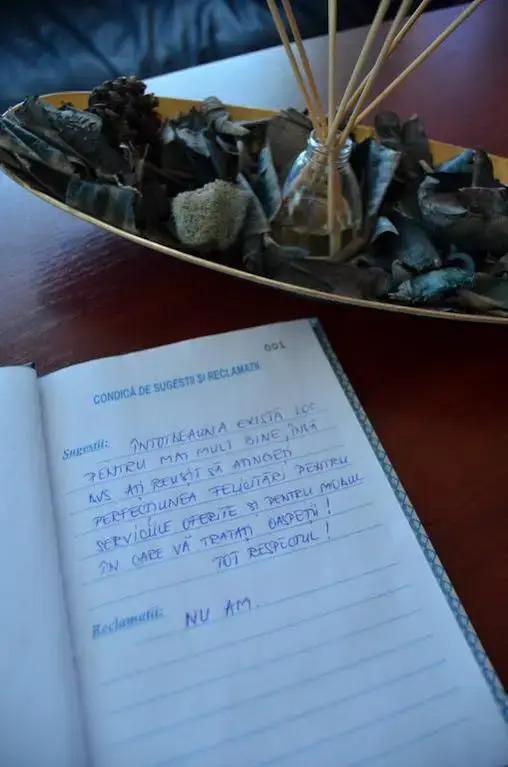 001
CONDICĂ DE SUGESTII ȘI RECLAMAȚII
Sugestii: ÎNTOTDEAUNA EXISTĂ LOC
PENTRU MAI MULT BINE, ÎNSĂ
DVS AȚI REUȘIT SĂ ATINGEȚI
PERFECȚIUNEA. FELICITĂRI PENTRU
SERVICIILE OFERITE ȘI PENTRU MODUL
ÎN CARE VĂ TRATAȚI OASPEȚII!
TOT RESPECTUL!
Reclamații: NU AM.